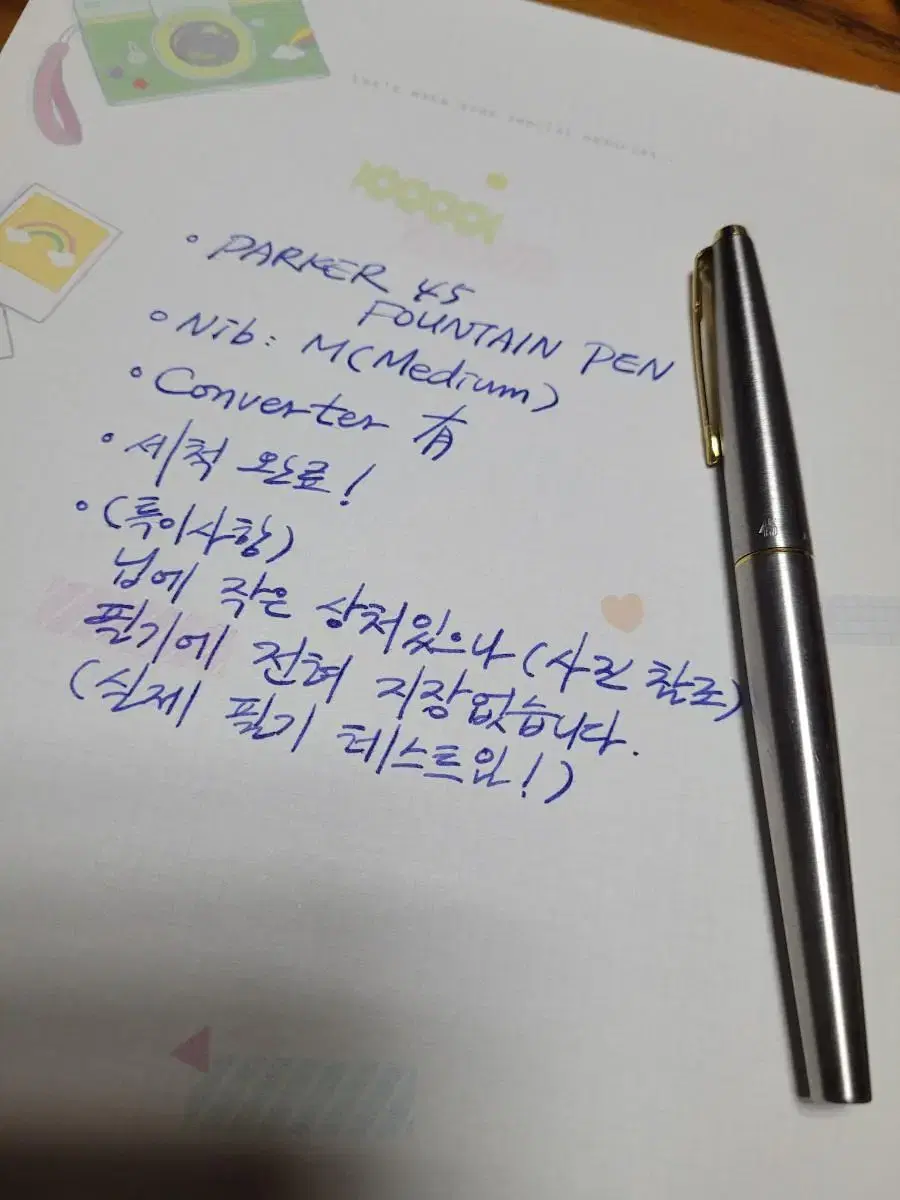 Let's make some special memories
• PARKER 45
FOUNTAIN PEN
• Nib: M(Medium)
• Converter 有
• 세척 완료!
• (특이사항)
닙에 작은 상처있으나 (사진 참조)
필기에 전혀 지장없습니다.
(실제 필기 테스트임!)
45